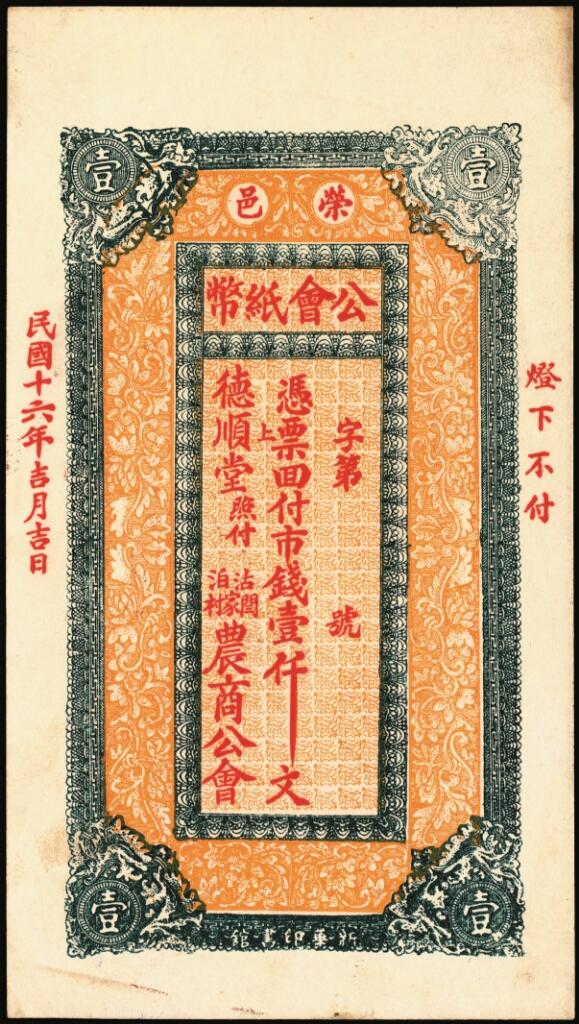 壹
壹
榮邑
公會紙幣
燈下不付
字第　號
憑票回付市錢壹仟文
德順堂上照付
沽閻家泊村農商公會
民國十六年吉月吉日
壹
壹
新華印書館